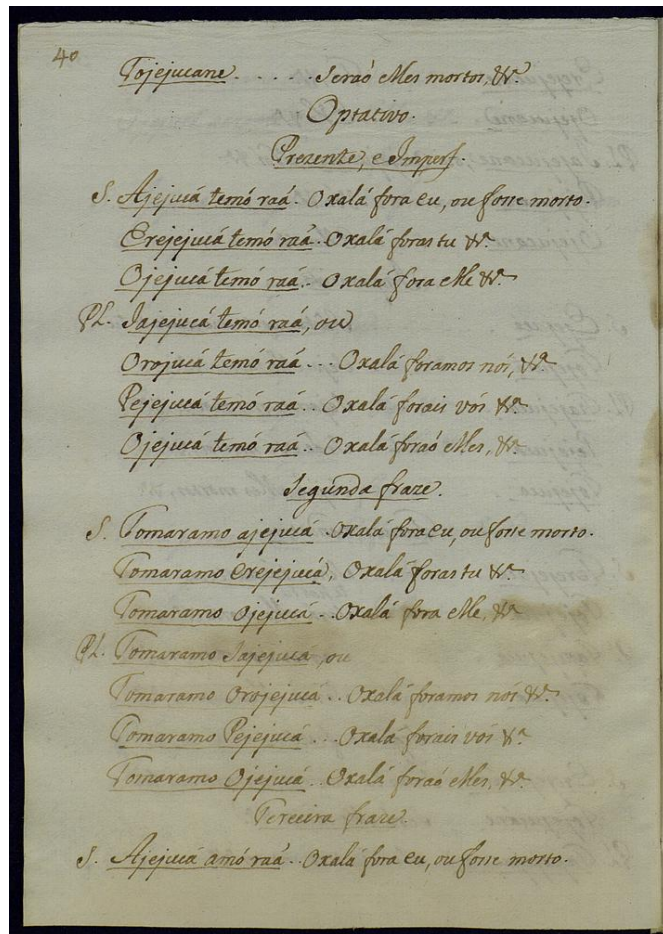 40
Tojejucane . . . . . Seraõ elles mortos, &ª
Optativo.
Prezente, e Imperf.
S. Ajejucá temó raá. Oxalá fora eu, ou fosse morto.
Erejejucá temó raá. Oxalá foras tu &ª
Ojejucá temó raá. Oxalá fora elle &ª
Pl. Jajejucá temó raá, ou
Orojucá temó raá . . . Oxalá foramos nós, &ª
Pejejucá temó raá. . Oxalá forais vós &ª
Ojejucá temó raá. . Oxalá foraõ elles, &ª
Segunda fraze.
S. Tomaramo ajejucá. Oxalá fora eu, ou fosse morto.
Tomaramo erejejucá. Oxalá foras tu &ª
Tomaramo Ojejucá. . Oxalá fora elle, &ª
Pl. Tomaramo Jajejuca, ou
Tomaramo Orojejucá. . Oxalá foramos nós &ª
Tomaramo Pejejucá . . . Oxalá forais vós &ª
Tomaramo Ojejucá. . Oxalá foraõ elles, &ª
Terceira fraze.
S. Ajejucá amó raá. . Oxalá fora eu, ou fosse morto.